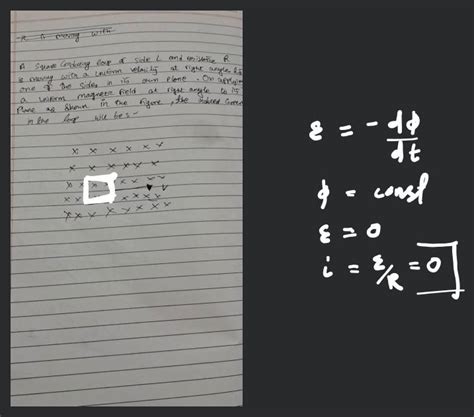 R is moving with
A square Conducting loop of side L and resistance R
is moving with a uniform velocity at right angles to
one of the sides in its own plane. On applying
a uniform magnetic field at right angle to its
Plane as shown in the figure, the induced current
in the loop will be :-
x x x x x x
x x x x x x
x x x x x
x x x x x x v
x x x x x x x
ε = - dφ/dt
φ = const
ε = 0
i = ε/R = 0